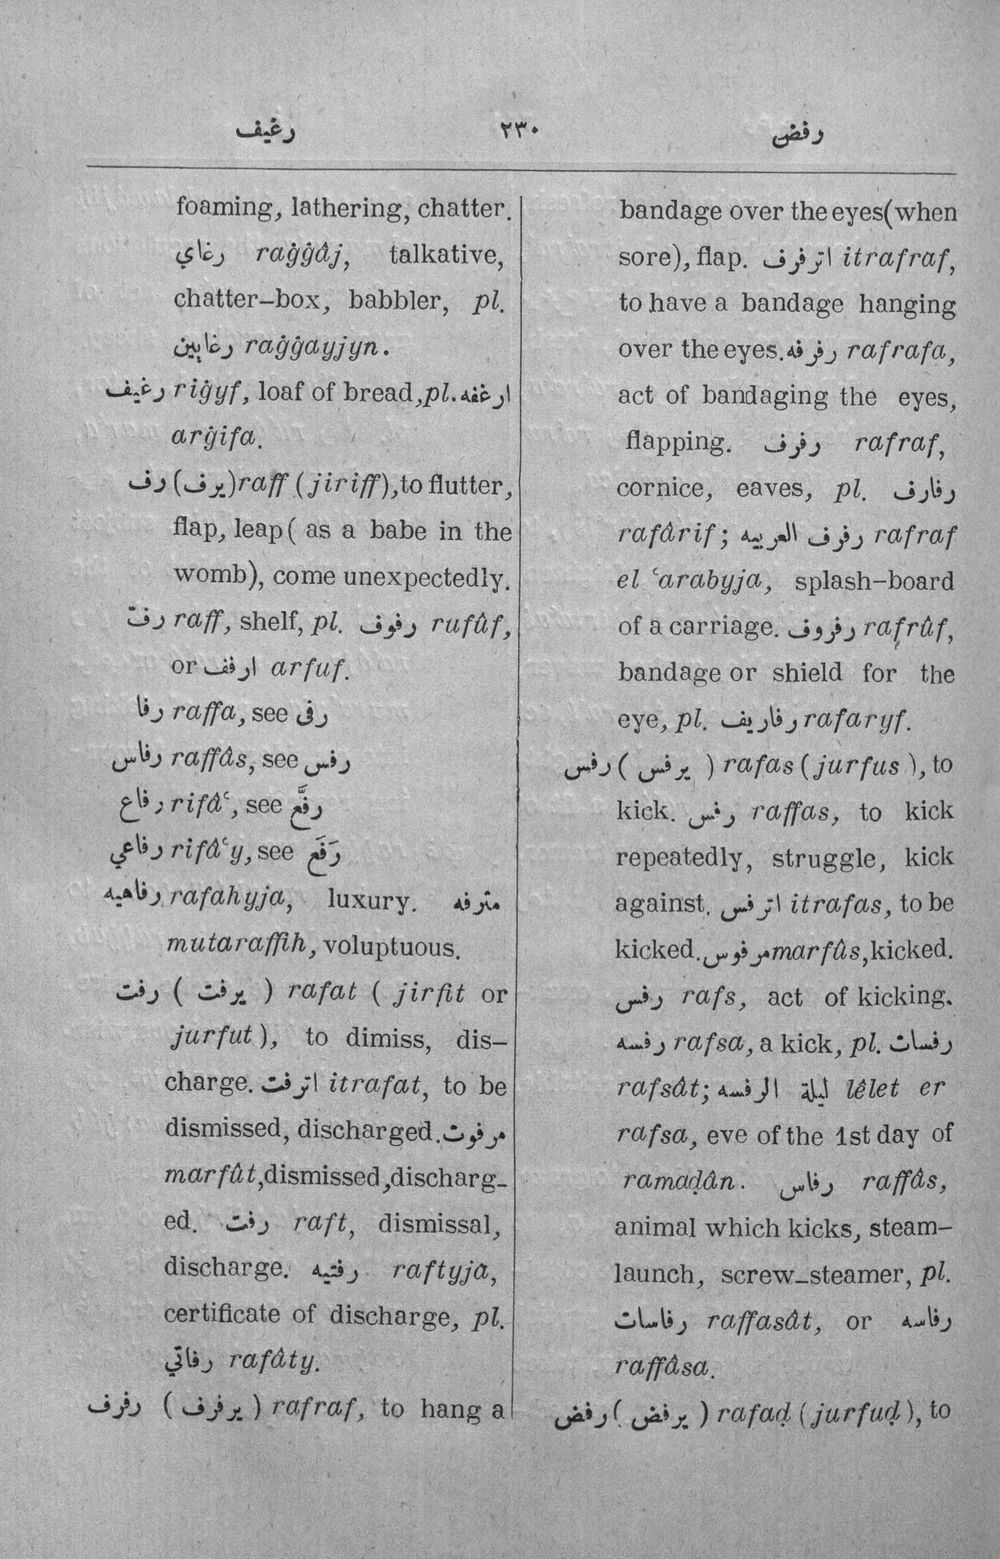 رغيف ٢٣٠ رفض
foaming, lathering, chatter.
رغاي raġġâj, talkative,
chatter-box, babbler, pl.
رغايين raġġayjyn.
رغيف riġyf, loaf of bread, pl. ارغفه
arġifa.
رف (يرف) raff (jiriff), to flutter,
flap, leap ( as a babe in the
womb), come unexpectedly.
رفّ raff, shelf, pl. رفوف rufûf,
or ارفف arfuf.
رفا raffa, see رفى
رفاس raffâs, see رفس
رفاع rifâʿ, see رفَّع
رفاعي rifâʿy, see رَفَع
رفاهيه rafahyja, luxury. مترفه
mutaraffih, voluptuous.
رفت ( يرفت ) rafat ( jirfit or
jurfut ), to dimiss, dis-
charge. اترفت itrafat, to be
dismissed, discharged. مرفوت
marfût, dismissed, discharg-
ed. رفت raft, dismissal,
discharge. رفتيه raftyja,
certificate of discharge, pl.
رفاتي rafâty.
رفرف ( يرفرف ) rafraf, to hang a
bandage over the eyes (when
sore), flap. اترفرف itrafraf,
to have a bandage hanging
over the eyes. رفرفه rafrafa,
act of bandaging the eyes,
flapping. رفرف rafraf,
cornice, eaves, pl. رفارف
rafârif; رفرف العربيه rafraf
el ʿarabyja, splash-board
of a carriage. رفروف rafrûf,
bandage or shield for the
eye, pl. رفاريف rafaryf.
رفس ( يرفس ) rafas (jurfus ), to
kick. رفس raffas, to kick
repeatedly, struggle, kick
against. اترفس itrafas, to be
kicked. مرفوس marfûs, kicked.
رفس rafs, act of kicking.
رفسه rafsa, a kick, pl. رفسات
rafsât; ليلة الرفسه lêlet er
rafsa, eve of the 1st day of
ramaḍân. رفاس raffâs,
animal which kicks, steam-
launch, screw-steamer, pl.
رفاسات raffasât, or رفاسه
raffâsa.
رفض ( يرفض ) rafaḍ (jurfuḍ ), to